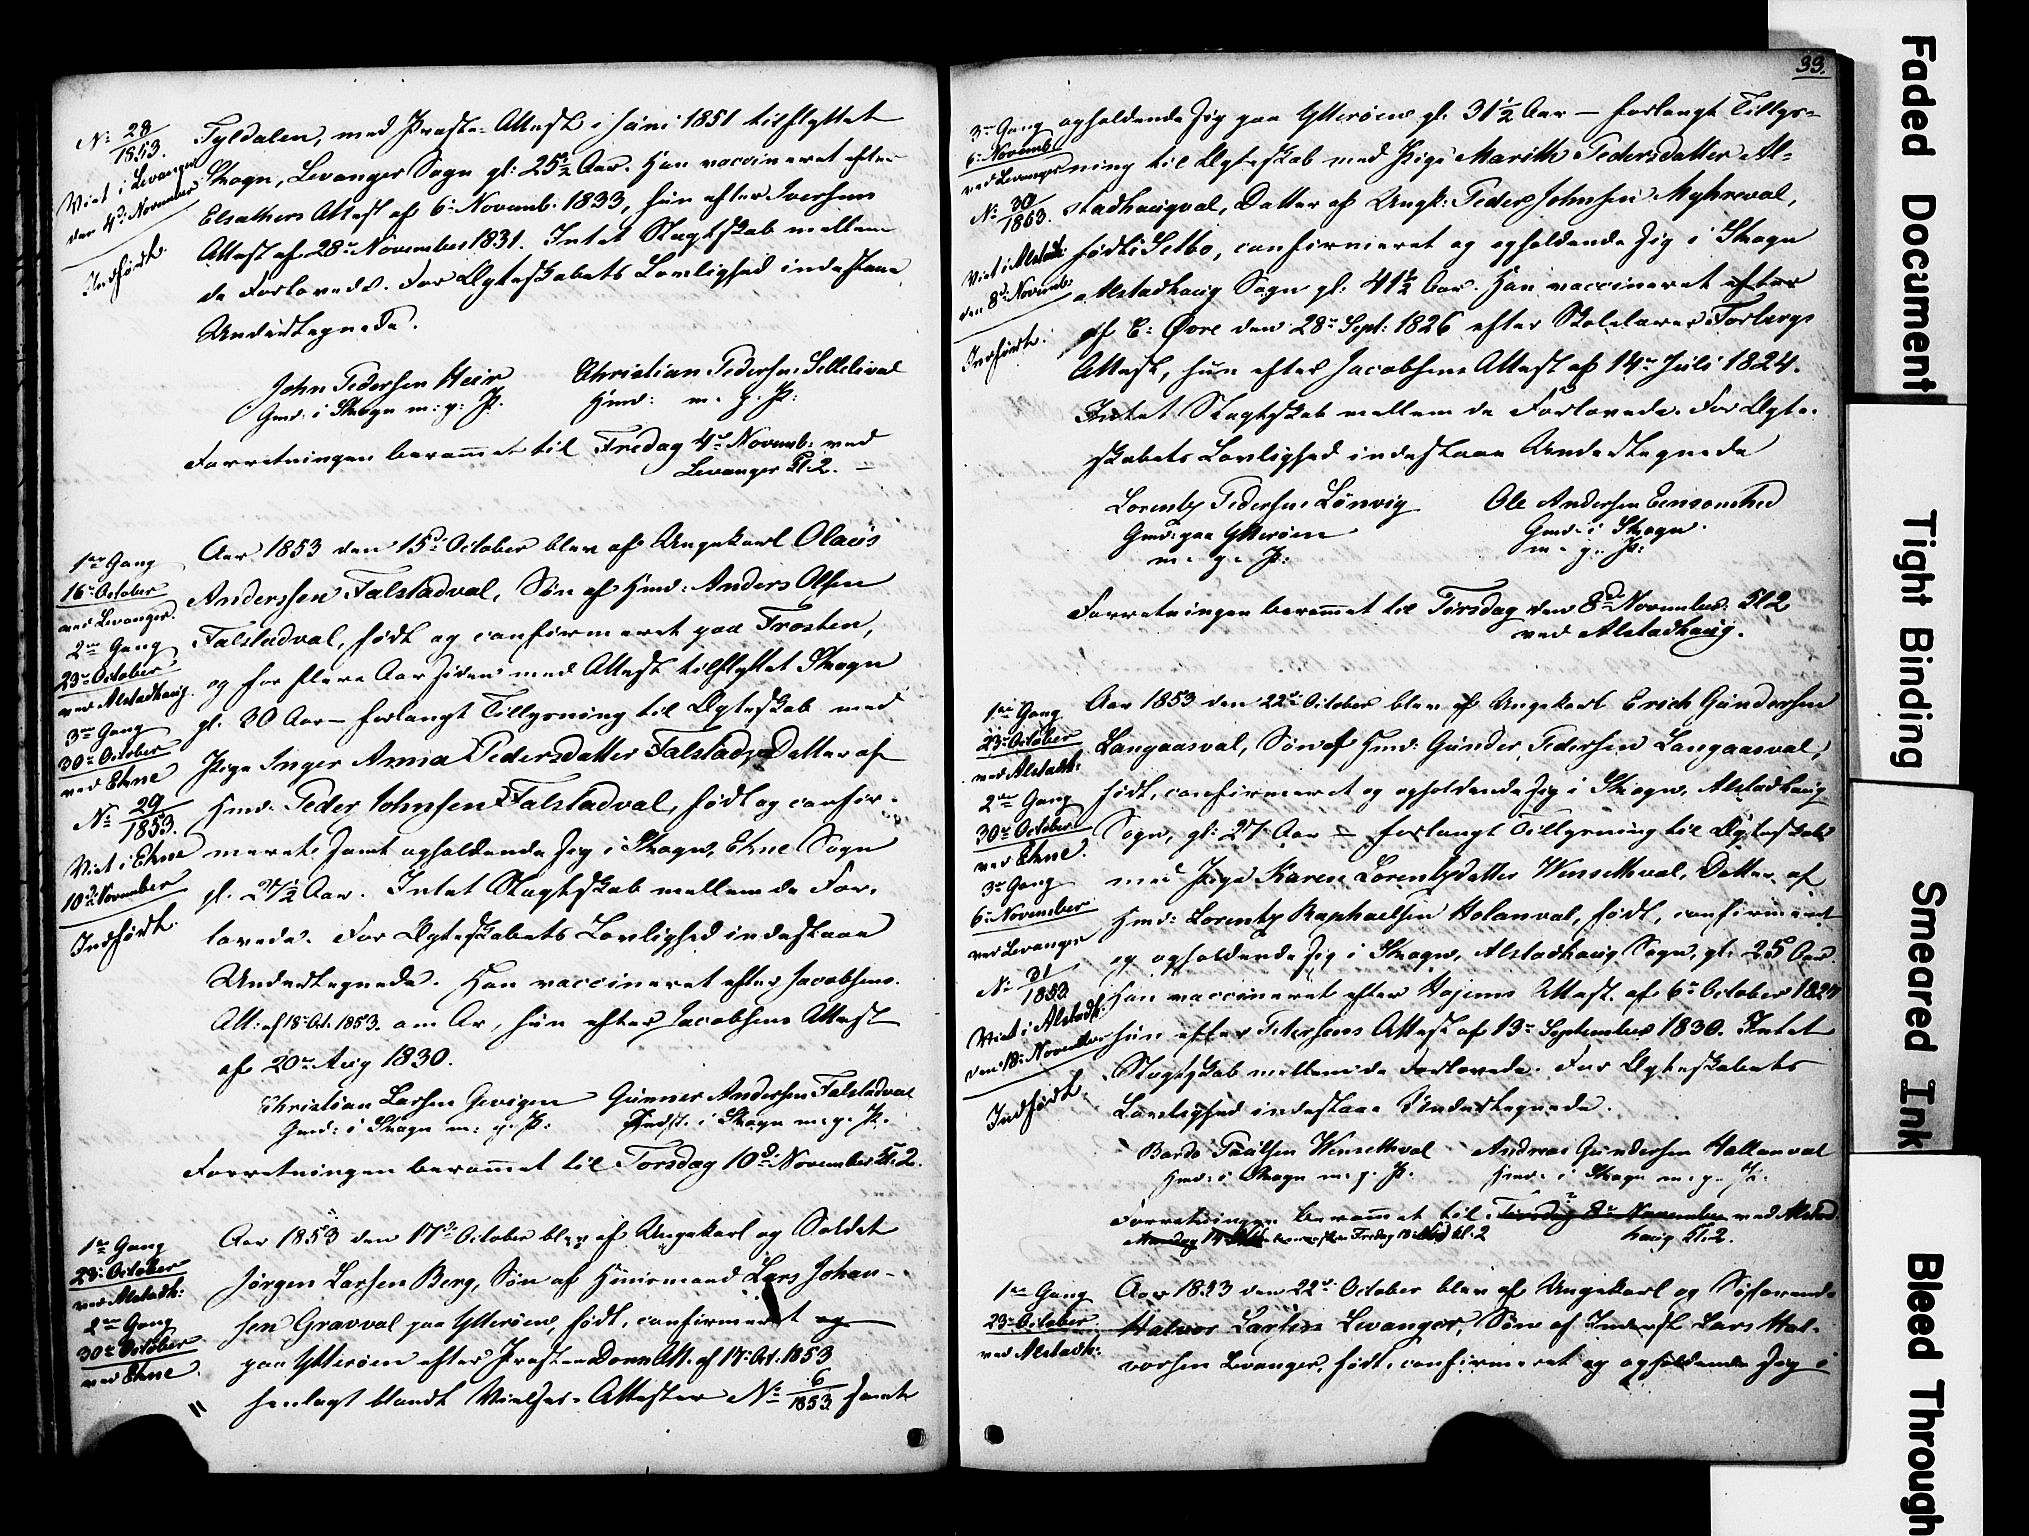 No 28
1853.
Viet i Levanger
den 4de November
Indført.
Tyldalen, med Præste-Attest i Juni 1851 tilflyttet
Skogn, Levanger Sogn gl: 25½ Aar. Han vaccineret efter
Elsathers Attest af 6te Novemb. 1833, hun efter Iversens
Attest af 28de November 1831. Intet Slægtskab mellem
de Forlovede. For Ægteskabets Lovlighed indestaae
Undertegnede.
John Pedersen Heir
Christian Pedersen
Gmd: i Skogn m: p: P.
Hmd: m. p. P:
Forretningen berammet til Fredag 4de Novemb: ved
Levanger Kl. 2. —
1ste Gang
16de October
ved Levanger.
2den Gang
23de October
ved Alstadhaug.
3die Gang
30te October
ved Ekne
No 29
1853.
Viet i Ekne
10de November
Indført.
Aar 1853 den 15de October blev af Ungekarl Olaus
Anderssen Falstadval, Søn af Hmd: Anders Olsen
Falstadval, født og confirmeret paa Frosten,
og for flere Aar siden med Attest tilflyttet Skogn
gl. 30 Aar — forlangt Tillysning til Ægteskab med
Pige Inger Anna Pedersdatter Falstad, Datter af
Hmd: Peder Johnsen Falstadval, født og confir-
meret samt opholdende sig i Skogn, Ekne Sogn
gl. 27½ Aar. Intet Slægtskab mellem de For-
lovede. For Ægteskabets Lovlighed indestaae
Undertegnede. Han vaccineret efter Jacobsens
Att: af 18de Oct. 1853. om Ar, hun efter Jacobsens Attest
af 20de Aug 1830.
Christian Larsen Gevigen
Gunner Andersen Falstadval
Gmd: i Skogn m: p: P:
i Skogn m: p. P.
Forretningen berammet til Torsdag 10de November Kl. 2.
1ste Gang
23de October
ved Alstadh:
2den Gang
30te October
ved Ekne.
Aar 1853 den 17de October blev af Ungekarl og Soldat
Jørgen Larsen Berg, Søn af Huusmand Lars Johan-
sen Gravval paa Ytterøen, født, confirmeret og
paa Ytterøen efter Præsten Att. af 14de Oct. 1853
henlagt blandt Vielses-Attester No 6/1853 samt
33.
3die Gang
6te Novemb:
ved Levanger
No 30
1853.
Viet i Alstadh:
den 8de Novemb:
Indført.
opholdende sig paa Ytterøen gl. 31½ Aar — forlangt Tillys-
ning til Ægteskab med Pige Marith Pedersdatter Al-
stadhaugval, Datter af Ungk: Peder Johnsen Myhreval,
født i Selbo, confirmeret og opholdende sig i Skogn
Alstadhaug Sogn gl. 41½ Aar. Han vaccineret efter
af C: Øvre den 28de Sept: 1826 efter Skolelærer Forbergs
Attest, hun efter Jacobsens Attest af 14de Juli 1824.
Intet Slægtskab mellem de Forlovede. For Ægte-
skabets Lovlighed indestaae Undertegnede
Lorentz Pedersen Lønvig
Ole Andersen
Gmd: paa Ytterøen
Gmd: i Skogn.
m. p. P:
m. p. P:
Forretningen berammet til Tirsdag den 8de November Kl 2
ved Alstadhaug.
1ste Gang
23de October
ved Alstadh:
2den Gang
30te October
ved Ekne.
3die Gang
6te November
ved Levanger
No 31
1853
Viet i Alstadh:
den 18de November
Indført.
Aar 1853 den 22de October blev af Ungekarl Erich Gundersen
Langaasval, Søn af Hmd: Gunder Pedersen Langaasval,
født, confirmeret og opholdende sig i Skogn, Alstadhaug
Sogn, gl: 27 Aar — forlangt Tillysning til Ægteskab
med Pige Karen Lorentzdatter Winsethval, Datter af
Hmd: Lorentz Raphaelsen Holanval, født, confirmeret
og opholdende sig i Skogn, Alstadhaug Sogn, gl: 25 Aar.
Han vaccineret efter Hojems Attest af 6te October 1827
hun efter Petersens Attest af 13de September 1830. Intet
Slægtskab mellem de Forlovede. For Ægteskabets
Lovlighed indestaae Undertegnede.
Bardo Paulsen Winsethval
Andreas Gundersen Hallanval
Hmd: i Skogn m: p. P.
Hmd: i Skogn m: p. P:
Forretningen berammet til Tirsdag 8de November ved Alstad-
haug Kl. 2.
Mandag 14 Fredag 18 Kl: 2
1ste Gang
23de October
ved Alstadh:
Aar 1853 den 22de October blev af Ungekarl og Søfarende
Halvor Larsen Levanger, Søn af Inderst Lars Hal-
vorsen Levanger, født, confirmeret og opholdende sig i
Faded Document
Tight Binding
Smeared Ink
Bleed Through